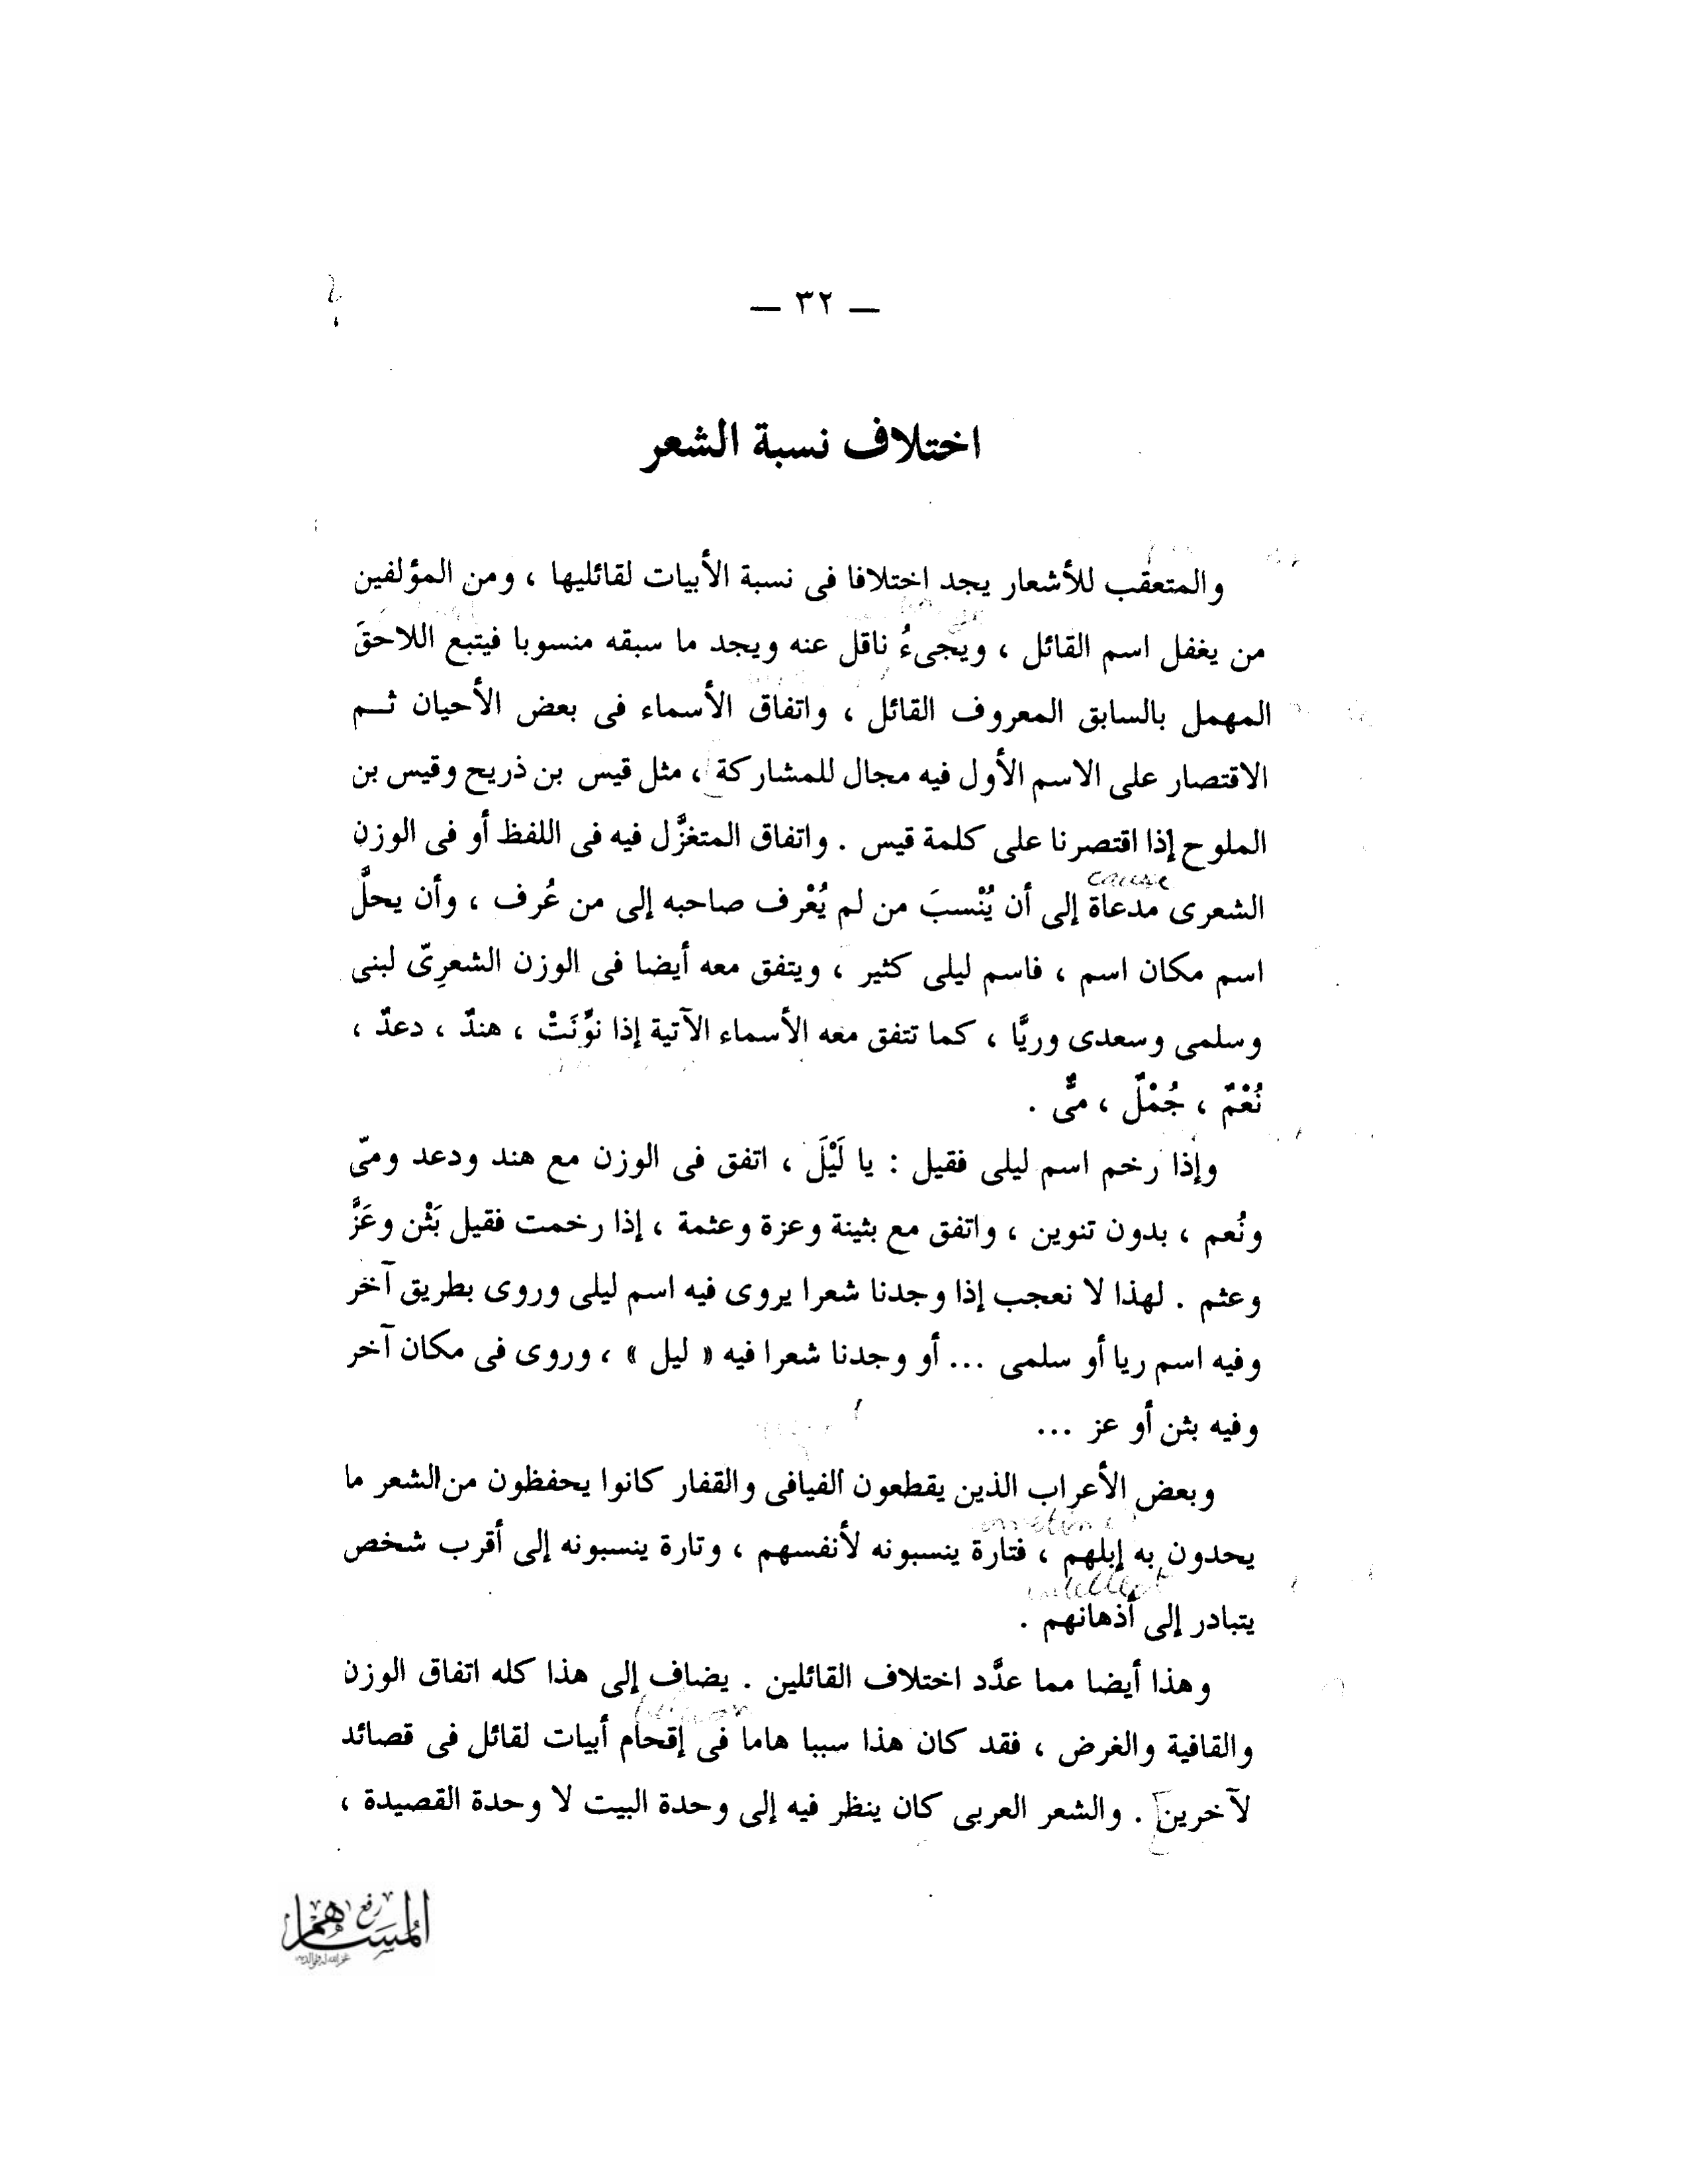 — ٣٢ —
اختلاف نسبة الشعر
والمتعقب للأشعار يجد اختلافا فى نسبة الأبيات لقائليها ، ومن المؤلفين
من يغفل اسم القائل ، ويجىءُ ناقل عنه ويجد ما سبقه منسوبا فيتبع اللاحقَ
المهمل بالسابق المعروف القائل ، واتفاق الأسماء فى بعض الأحيان ثم
الاقتصار على الاسم الأول فيه مجال للمشاركة ، مثل قيس بن ذريح وقيس بن
الملوح إذا اقتصرنا على كلمة قيس . واتفاق المتغزَّل فيه فى اللفظ أو فى الوزن
cause
الشعرى مدعاة إلى أن يُنْسبَ من لم يُعْرف صاحبه إلى من عُرف ، وأن يحلَّ
اسم مكان اسم ، فاسم ليلى كثير ، ويتفق معه أيضا فى الوزن الشعرِىّ لبنى
وسلمى وسعدى وريَّا ، كما تتفق معه الأسماء الآتية إذا نوِّنَتْ ، هندٌ ، دعدٌ ،
نُعْمٌ ، جُمْلٌ ، مىٌّ .
وإذا رخم اسم ليلى فقيل : يا لَيْلَ ، اتفق فى الوزن مع هند ودعد ومىّ
ونُعم ، بدون تنوين ، واتفق مع بثينة وعزة وعثمة ، إذا رخمت فقيل بَثْن وعَزَّ
وعثم . لهذا لا نعجب إذا وجدنا شعرا يروى فيه اسم ليلى وروى بطريق آخر
وفيه اسم ريا أو سلمى ... أو وجدنا شعرا فيه « ليل » ، وروى فى مكان آخر
وفيه بثن أو عز ...
وبعض الأعراب الذين يقطعون الفيافى والقفار كانوا يحفظون من الشعر ما
يحدون به إبلهم ، فتارة ينسبونه لأنفسهم ، وتارة ينسبونه إلى أقرب شخص
intellect
يتبادر إلى أذهانهم .
وهذا أيضا مما عدَّد اختلاف القائلين . يضاف إلى هذا كله اتفاق الوزن
والقافية والغرض ، فقد كان هذا سببا هاما فى إقحام أبيات لقائل فى قصائد
لآخرين . والشعر العربى كان ينظر فيه إلى وحدة البيت لا وحدة القصيدة ،